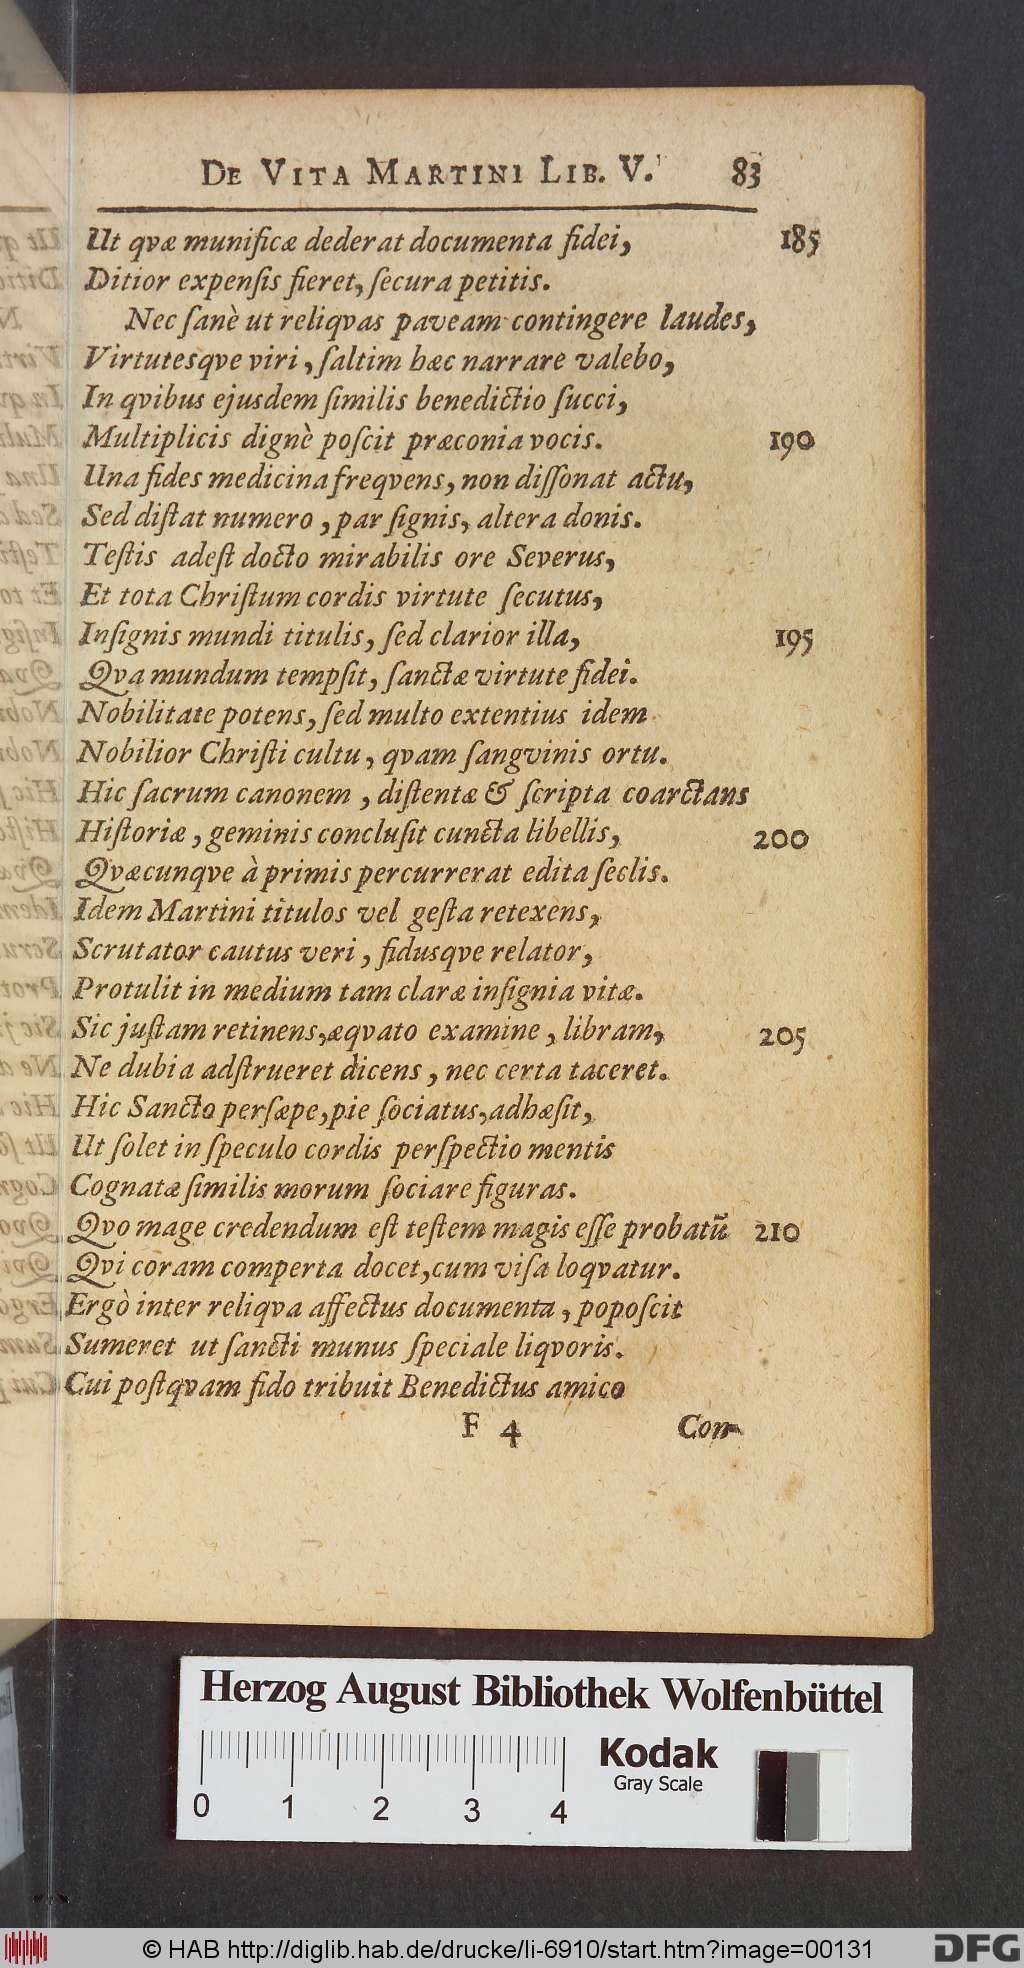 DE VITA MARTINI LIB. V. 83
Ut qvæ munificæ dederat documenta fidei, 185
Ditior expenſis fieret, ſecura petitis.
Nec ſanè ut reliqvas paveam contingere laudes,
Virtutesqve viri, ſaltim hæc narrare valebo,
In qvibus ejusdem ſimilis benedictio ſucci,
Multiplicis dignè poſcit præconia vocis. 190
Una fides medicina freqvens, non diſſonat actu,
Sed diſtat numero, par ſignis, altera donis.
Teſtis adeſt docto mirabilis ore Severus,
Et tota Chriſtum cordis virtute ſecutus,
Inſignis mundi titulis, ſed clarior illa, 195
Qva mundum tempſit, ſanctæ virtute fidei.
Nobilitate potens, ſed multo extentius idem
Nobilior Chriſti cultu, qvam ſangvinis ortu.
Hic ſacrum canonem, diſtentæ & ſcripta coarctans
Hiſtoriæ, geminis concluſit cuncta libellis, 200
Qvæcunqve à primis percurrerat edita ſeclis.
Idem Martini titulos vel geſta retexens,
Scrutator cautus veri, fidusqve relator,
Protulit in medium tam claræ inſignia vitæ.
Sic juſtam retinens, æqvato examine, libram, 205
Ne dubia adſtrueret dicens, nec certa taceret.
Hic Sancto perſæpe, pie ſociatus, adhæſit,
Ut ſolet in ſpeculo cordis perſpectio mentis
Cognatæ ſimilis morum ſociare figuras.
Qvo mage credendum eſt teſtem magis eſſe probatũ 210
Qvi coram comperta docet, cum viſa loqvatur.
Ergò inter reliqva affectus documenta, popoſcit
Sumeret ut ſancti munus ſpeciale liqvoris.
Cui poſtqvam fido tribuit Benedictus amico
F 4 Con-
Herzog August Bibliothek Wolfenbüttel
Kodak
Gray Scale
0 1 2 3 4
© HAB http://diglib.hab.de/drucke/li-6910/start.htm?image=00131
DFG